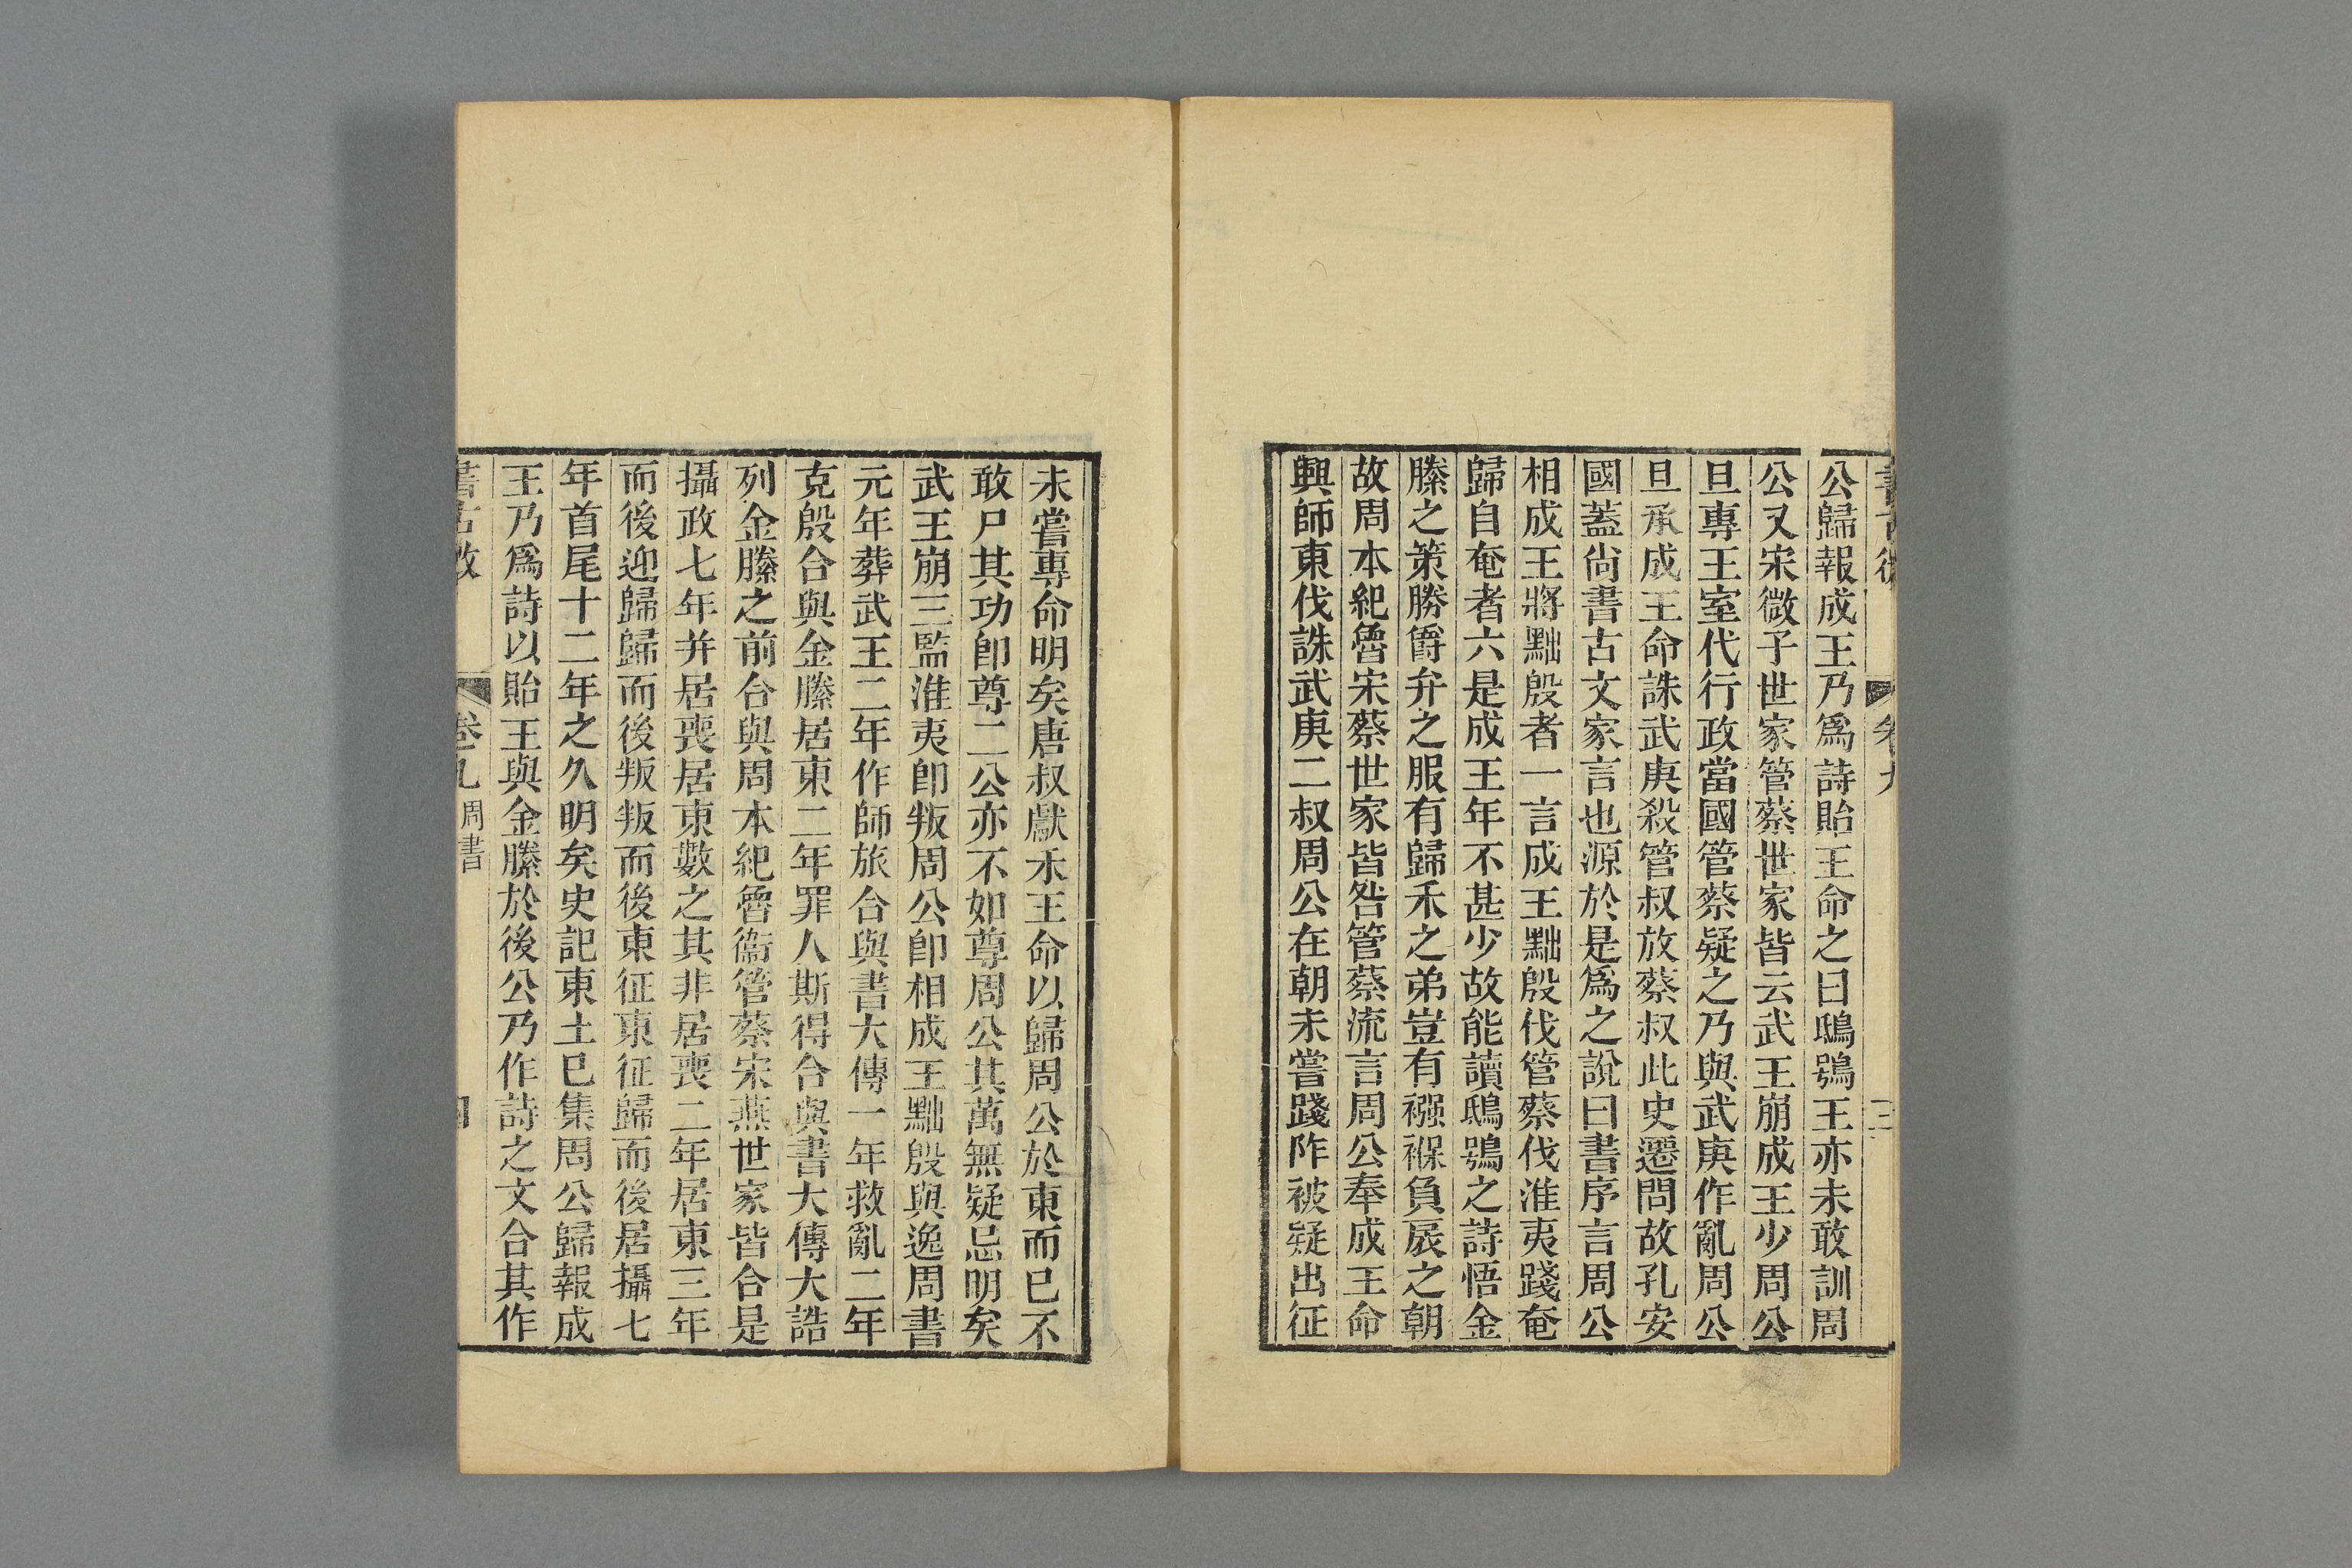 書古微
卷九
三
公歸報成王乃爲詩貽王命之曰鴟鴞王亦未敢訓周
公又宋微子世家管蔡世家皆云武王崩成王少周公
旦專王室代行政當國管蔡疑之乃與武庚作亂周公
旦承成王命誅武庚殺管叔放蔡叔此史遷問故孔安
國蓋尙書古文家言也源於是爲之說曰書序言周公
相成王將黜殷者一言成王黜殷伐管蔡伐淮夷踐奄
歸自奄者六是成王年不甚少故能讀鴟鴞之詩悟金
縢之策勝爵弁之服有歸禾之弟豈有襁褓負扆之朝
故周本紀魯宋蔡世家皆咎管蔡流言周公奉成王命
興師東伐誅武庚二叔周公在朝未嘗踐阼被疑出征
未嘗專命明矣唐叔獻禾王命以歸周公於東而已不
敢尸其功卽尊二公亦不如尊周公其萬無疑忌明矣
武王崩三監淮夷卽叛周公卽相成王黜殷與逸周書
元年葬武王二年作師旅合與書大傳一年救亂二年
克殷合與金縢居東二年罪人斯得合與書大傳大誥
列金縢之前合與周本紀魯衞管蔡宋燕世家皆合是
攝政七年并居喪居東數之其非居喪二年居東三年
而後迎歸歸而後叛叛而後東征東征歸而後居攝七
年首尾十二年之久明矣史記東土已集周公歸報成
王乃爲詩以貽王與金縢於後公乃作詩之文合其作
書古微
卷九
周書
四